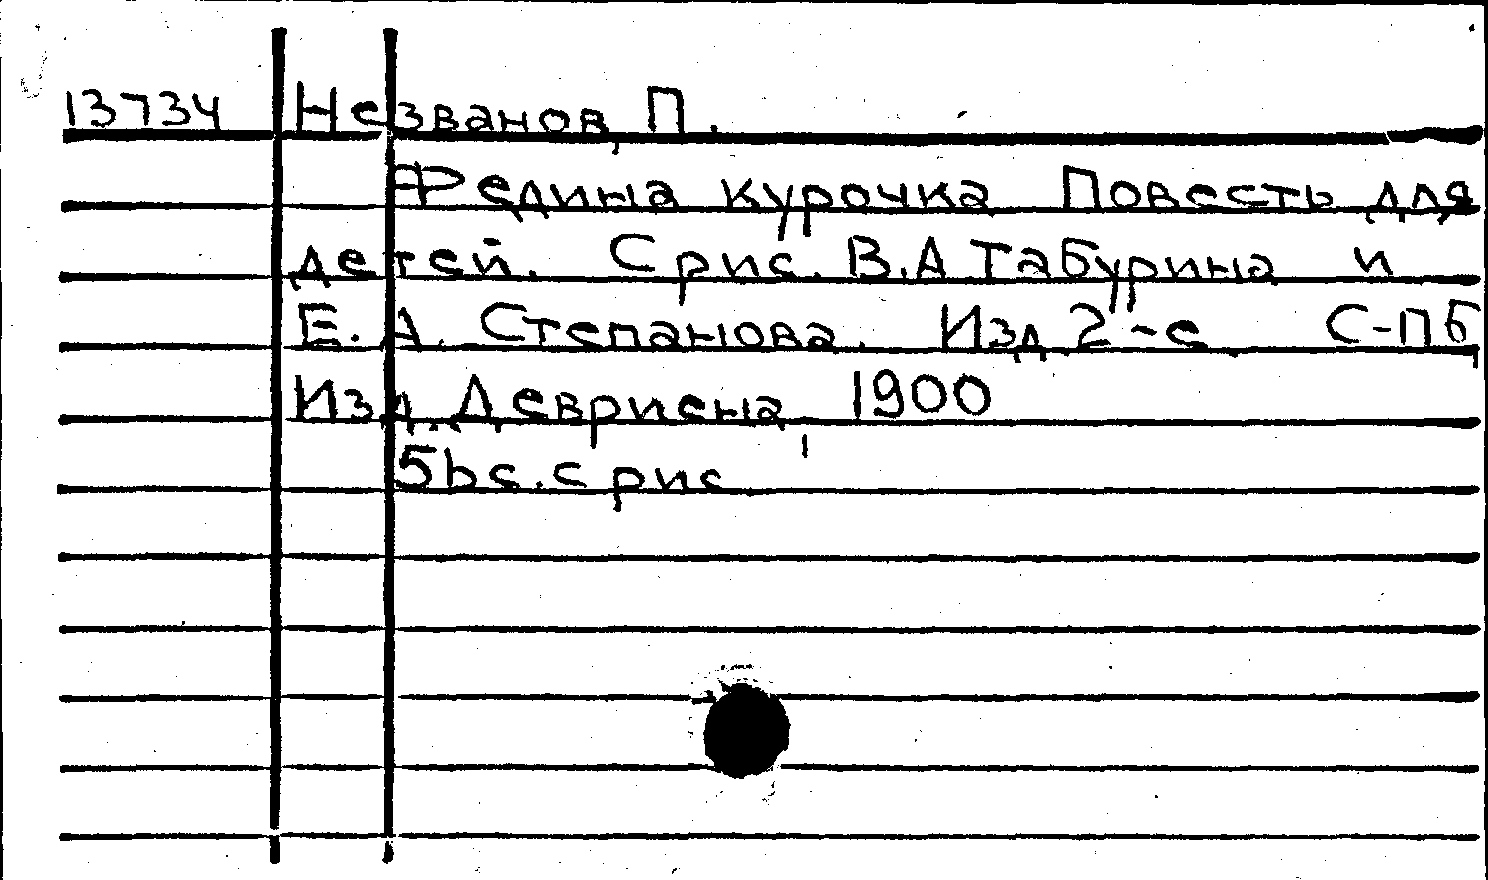 13734 Незванов, П.
Федина курочка Повесть для
детей. С рис. В.А Табурина и
Е.А. Степанова. Изд. 2-е. С-Пб,
Изд. Девриена, 1900
56 с. с рис